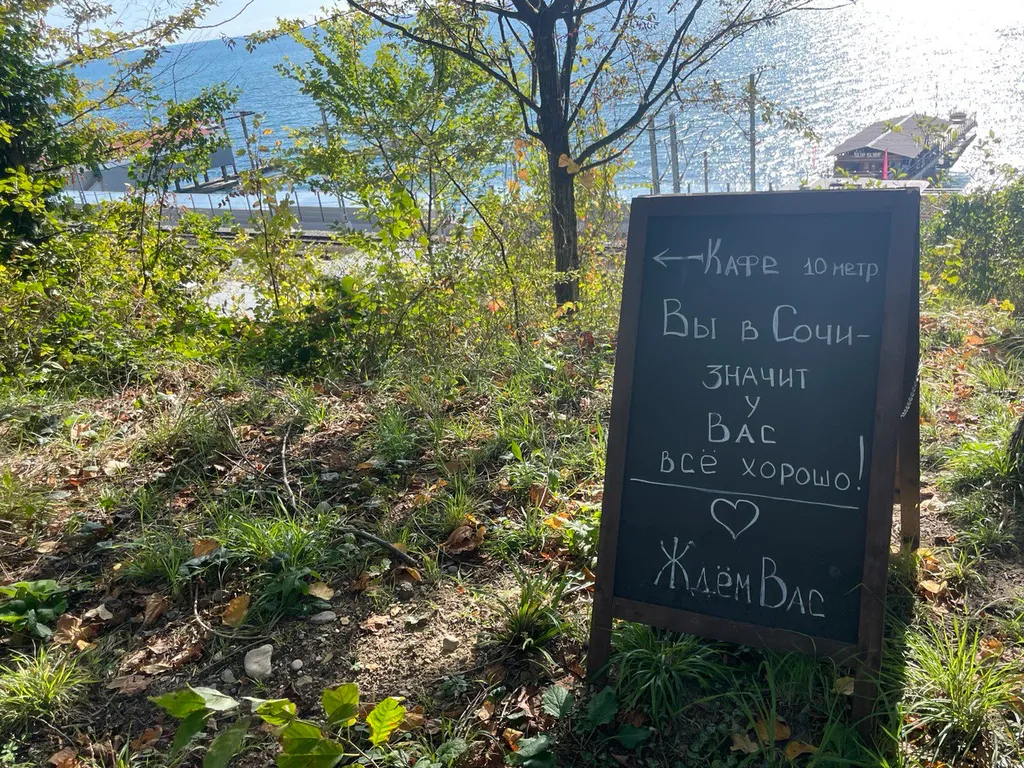 ← Кафе 10 метр
Вы в Сочи-
значит
у
Вас
всё хорошо!
♡
Ждём Вас